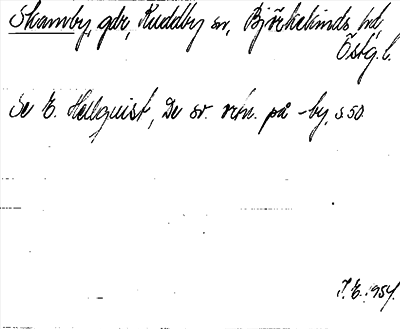 Skamby, gdr, Kuddby sn, Björkekinds hd,
Östg. l.
Se E. Hellquist, De sv. ortn. på -by, s 50.
J. E. 1954.